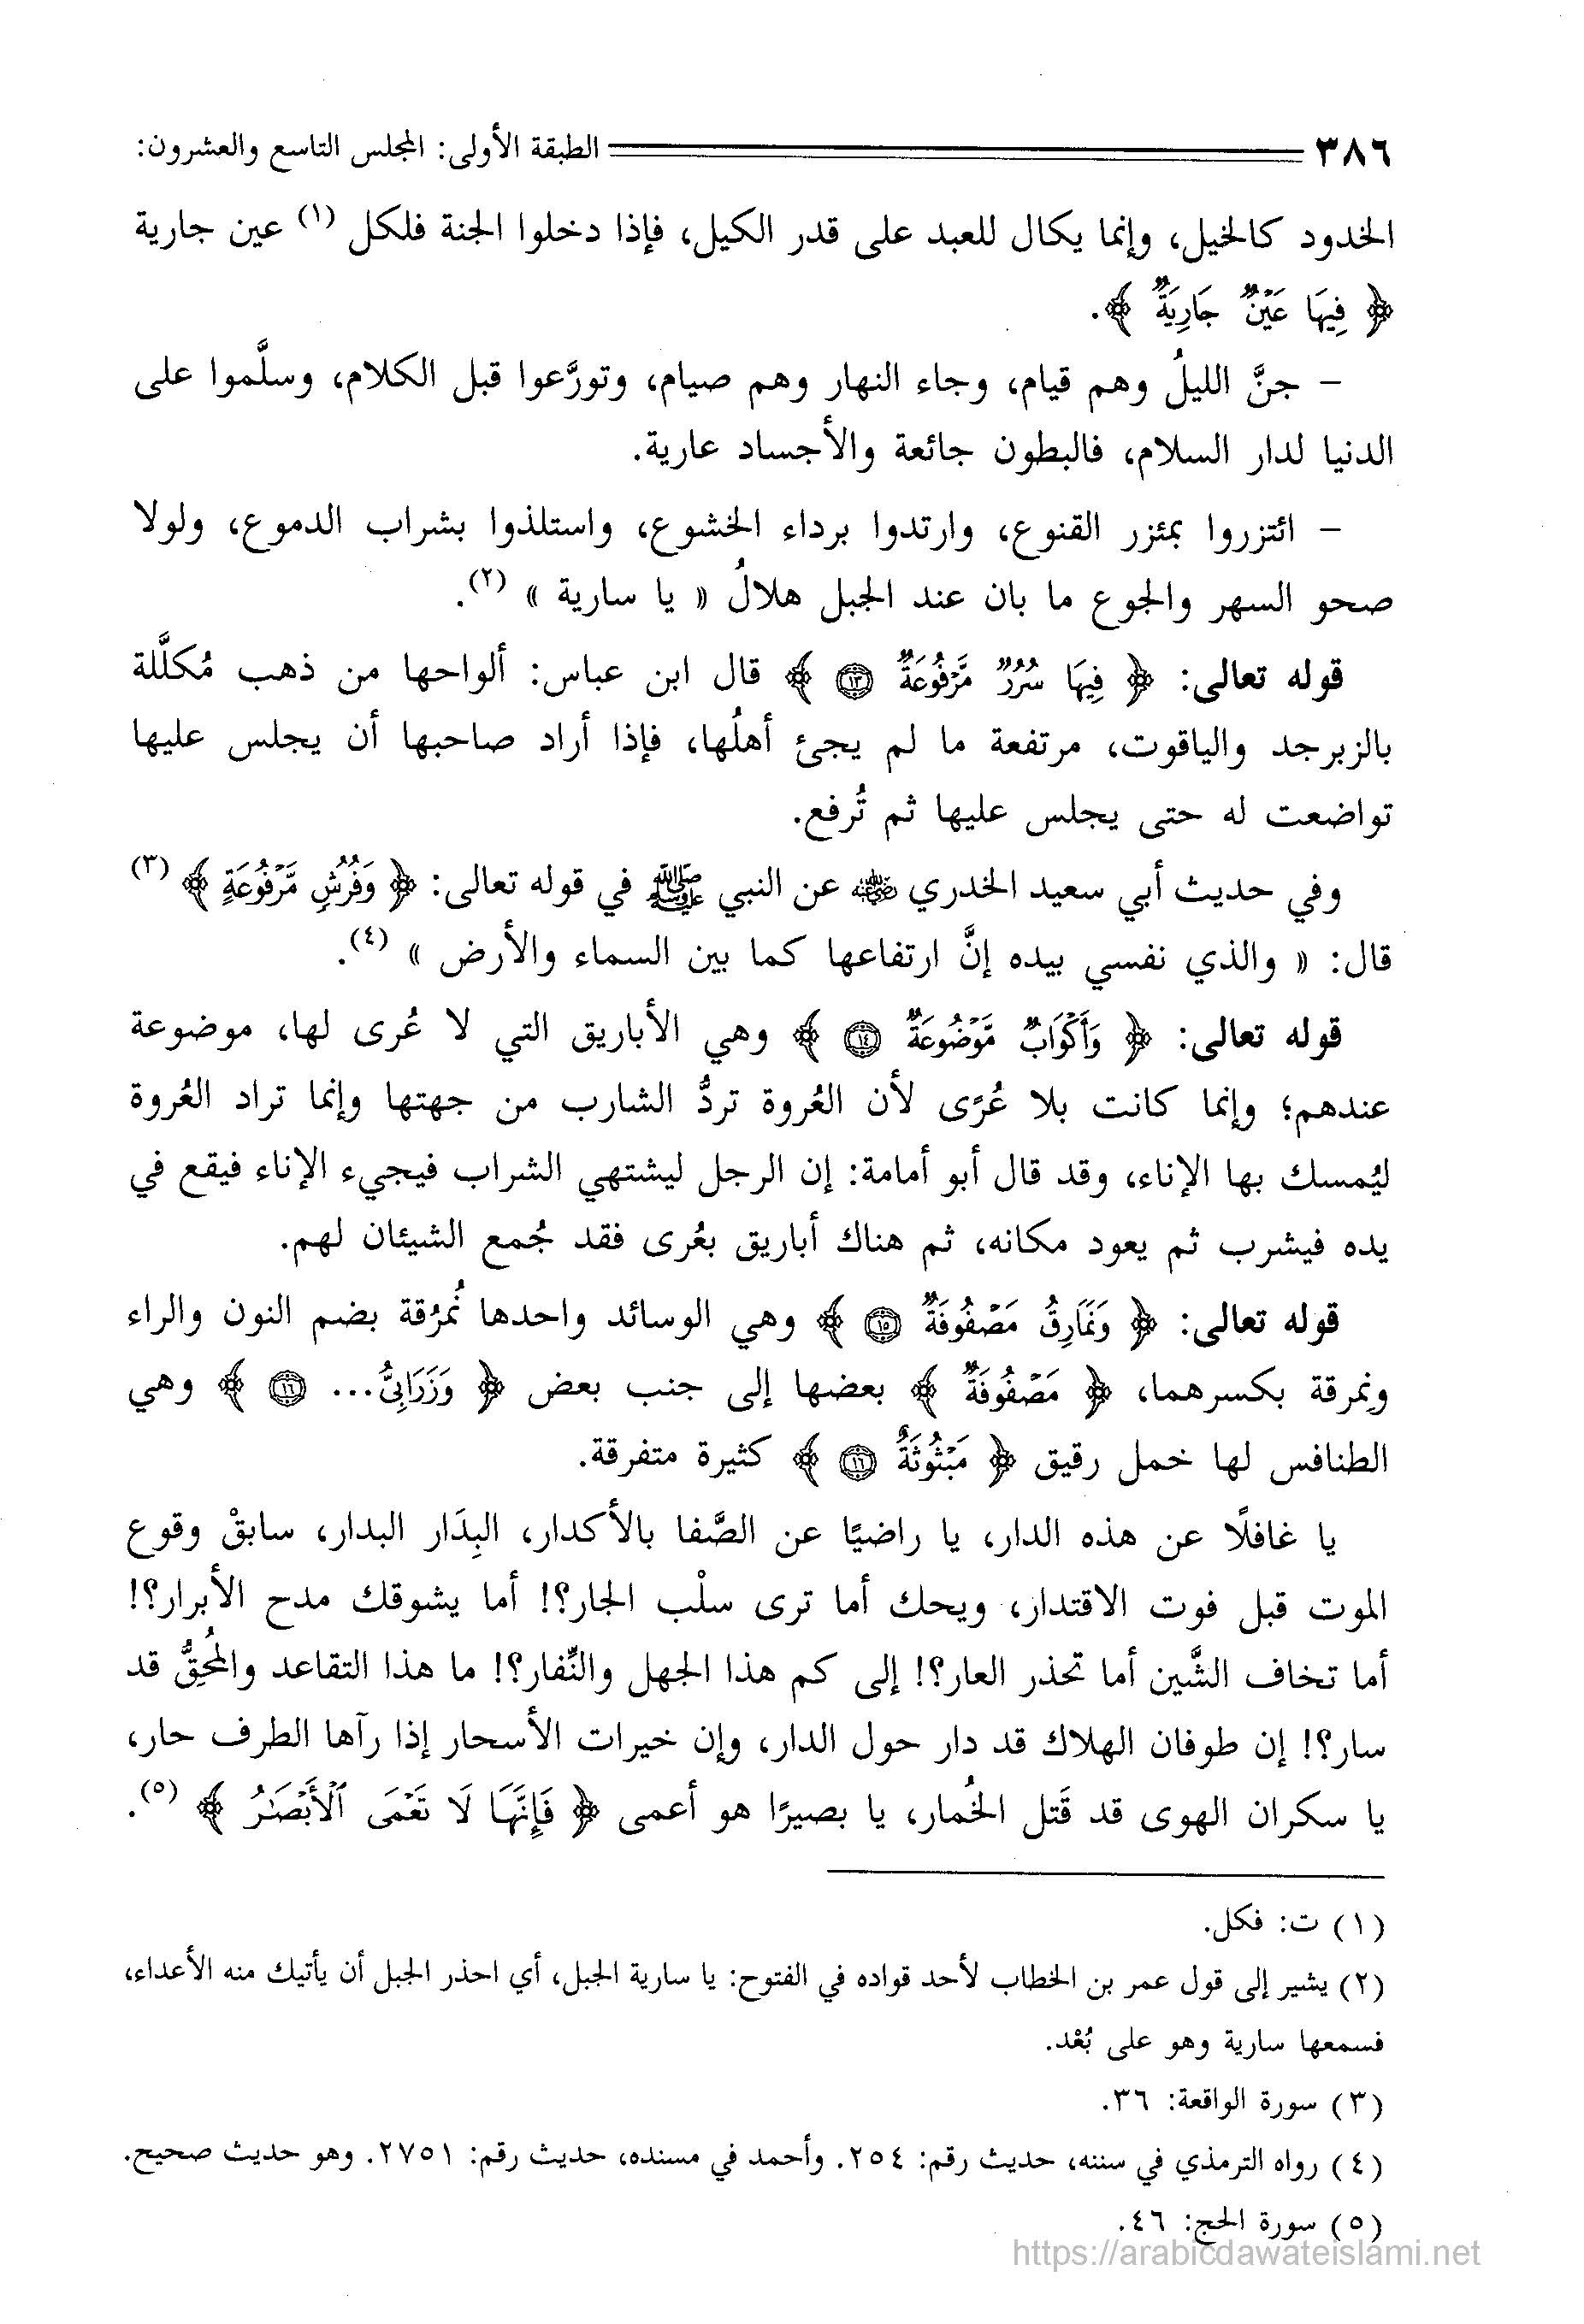 ٣٨٦ الطبقة الأولى: المجلس التاسع والعشرون:
الخدود كالخيل، وإنما يكال للعبد على قدر الكيل، فإذا دخلوا الجنة فلكل (١) عين جارية
﴿ فِيهَا عَيْنٌ جَارِيَةٌ ﴾.
– جنَّ الليلُ وهم قيام، وجاء النهار وهم صيام، وتورَّعوا قبل الكلام، وسلَّموا على
الدنيا لدار السلام، فالبطون جائعة والأجساد عارية.
– ائتزروا بمئزر القنوع، وارتدوا برداء الخشوع، واستلذوا بشراب الدموع، ولولا
صحو السهر والجوع ما بان عند الجبل هلالُ « يا سارية » (٢).
قوله تعالى: ﴿ فِيهَا سُرُرٌ مَّرْفُوعَةٌ ١٣ ﴾ قال ابن عباس: ألواحها من ذهب مُكلَّلة
بالزبرجد والياقوت، مرتفعة ما لم يجئ أهلُها، فإذا أراد صاحبها أن يجلس عليها
تواضعت له حتى يجلس عليها ثم تُرفع.
وفي حديث أبي سعيد الخدري ﵁ عن النبي ﷺ في قوله تعالى: ﴿ وَفُرُشٍ مَّرْفُوعَةٍ ﴾ (٣)
قال: « والذي نفسي بيده إنَّ ارتفاعها كما بين السماء والأرض » (٤).
قوله تعالى: ﴿ وَأَكْوَابٌ مَّوْضُوعَةٌ ١٤ ﴾ وهي الأباريق التي لا عُرى لها، موضوعة
عندهم؛ وإنما كانت بلا عُرًى لأن العُروة تردُّ الشارب من جهتها وإنما تراد العُروة
ليُمسك بها الإناء، وقد قال أبو أمامة: إن الرجل ليشتهي الشراب فيجيء الإناء فيقع في
يده فيشرب ثم يعود مكانه، ثم هناك أباريق بعُرى فقد جُمع الشيئان لهم.
قوله تعالى: ﴿ وَنَمَارِقُ مَصْفُوفَةٌ ١٥ ﴾ وهي الوسائد واحدها نُمرُقة بضم النون والراء
ونِمرقة بكسرهما، ﴿ مَصْفُوفَةٌ ﴾ بعضها إلى جنب بعض ﴿ وَزَرَابِيُّ... ١٦ ﴾ وهي
الطنافس لها خمل رقيق ﴿ مَبْثُوثَةٌ ١٦ ﴾ كثيرة متفرقة.
يا غافلًا عن هذه الدار، يا راضيًا عن الصَّفا بالأكدار، البِدَار البدار، سابقْ وقوع
الموت قبل فوت الاقتدار، ويحك أما ترى سلْب الجار؟! أما يشوقك مدح الأبرار؟!
أما تخاف الشَّين أما تحذر العار؟! إلى كم هذا الجهل والنِّفار؟! ما هذا التقاعد والمُحِقُّ قد
سار؟! إن طوفان الهلاك قد دار حول الدار، وإن خيرات الأسحار إذا رآها الطرف حار،
يا سكران الهوى قد قَتل الخُمار، يا بصيرًا هو أعمى ﴿ فَإِنَّهَا لَا تَعْمَى ٱلْأَبْصَـٰرُ ﴾ (٥).
(١) ت: فكل.
(٢) يشير إلى قول عمر بن الخطاب لأحد قواده في الفتوح: يا سارية الجبل، أي احذر الجبل أن يأتيك منه الأعداء،
فسمعها سارية وهو على بُعْد.
(٣) سورة الواقعة: ٣٦.
(٤) رواه الترمذي في سننه، حديث رقم: ٢٥٤. وأحمد في مسنده، حديث رقم: ٢٧٥١. وهو حديث صحيح.
(٥) سورة الحج: ٤٦.
https://arabicdawateislami.net